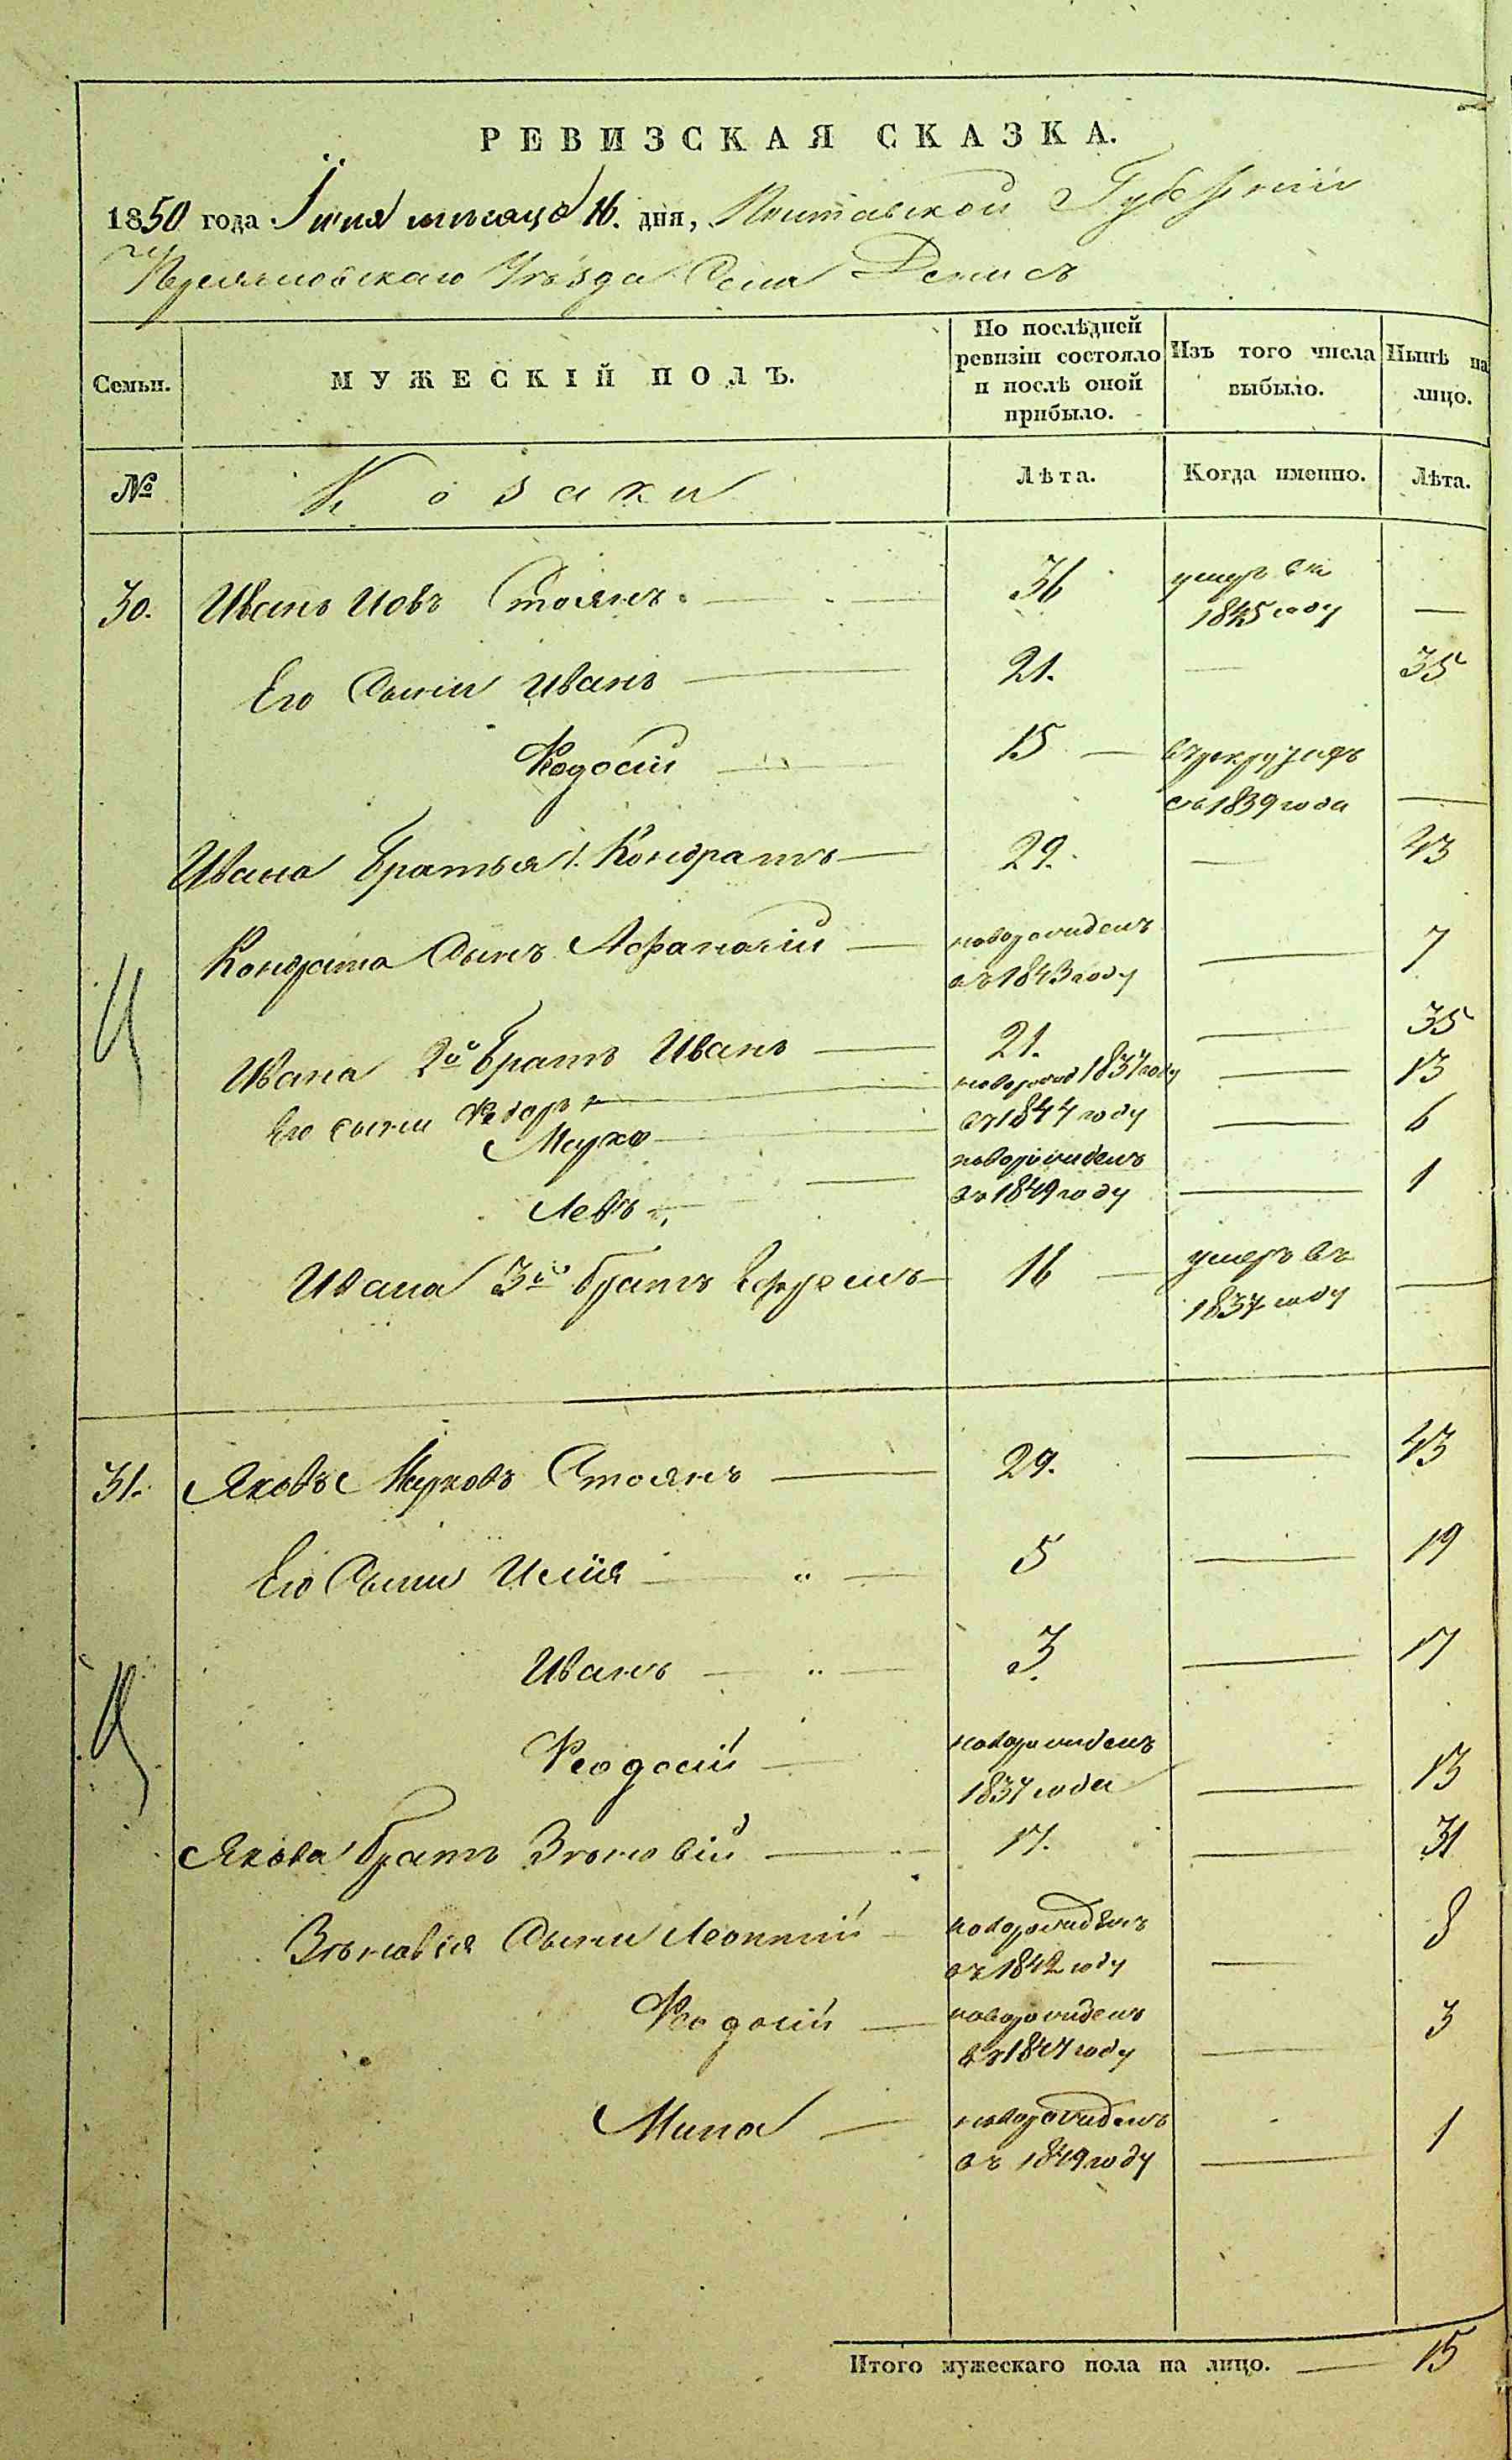 РЕВИЗСКАЯ СКАЗКА.
1850 года Іюня мѣсяца 16. дня, Полтавской Губерніи
Переяславскаго Уѣзда Села Денисъ
Семьи. МУЖЕСКІЙ ПОЛЪ. По послѣдней ревизіи состояло и послѣ оной прибыло. Изъ того числа выбыло. Нынѣ на лицо.
№ Козаки Лѣта. Когда именно. Лѣта.
30. Иванъ Иовъ Стоянъ. — 36 умеръ въ 1845 году —
Его Сыни Иванъ — 21. — 35
Феодосій — 15 — въ рекрутахъ съ 1839 года —
Ивана Братья 1. Кондратъ — 29. — 43
Кондрата Сынъ Афанасій — новорожденъ въ 1843 году — 7
Ивана 2й Братъ Иванъ — 21. — 35
Его сыни Федоръ — новорожд 1837 году — 13
Марко — въ 1844 году — 6
Левъ — новорожденъ въ 1849 году — 1
Ивана 3й братъ Ефремъ — 16 — умеръ въ 1837 году —
31. Яковъ Марковъ Стоянъ — 29. — 43
Его Сыни Илія — „ — 5 — 19
Иванъ — „ — 3. — 17
Феодосій — новорожденъ 1837 года — 13
Якова братъ Зѣновій — 17. — 31
Зѣновія Сыни Леонтій — новорожденъ въ 1842 году — 8
Феодосій — новорожденъ въ 1847 году — 3
Мина — новорожденъ въ 1849 году — 1
Итого мужескаго пола на лицо. — 15